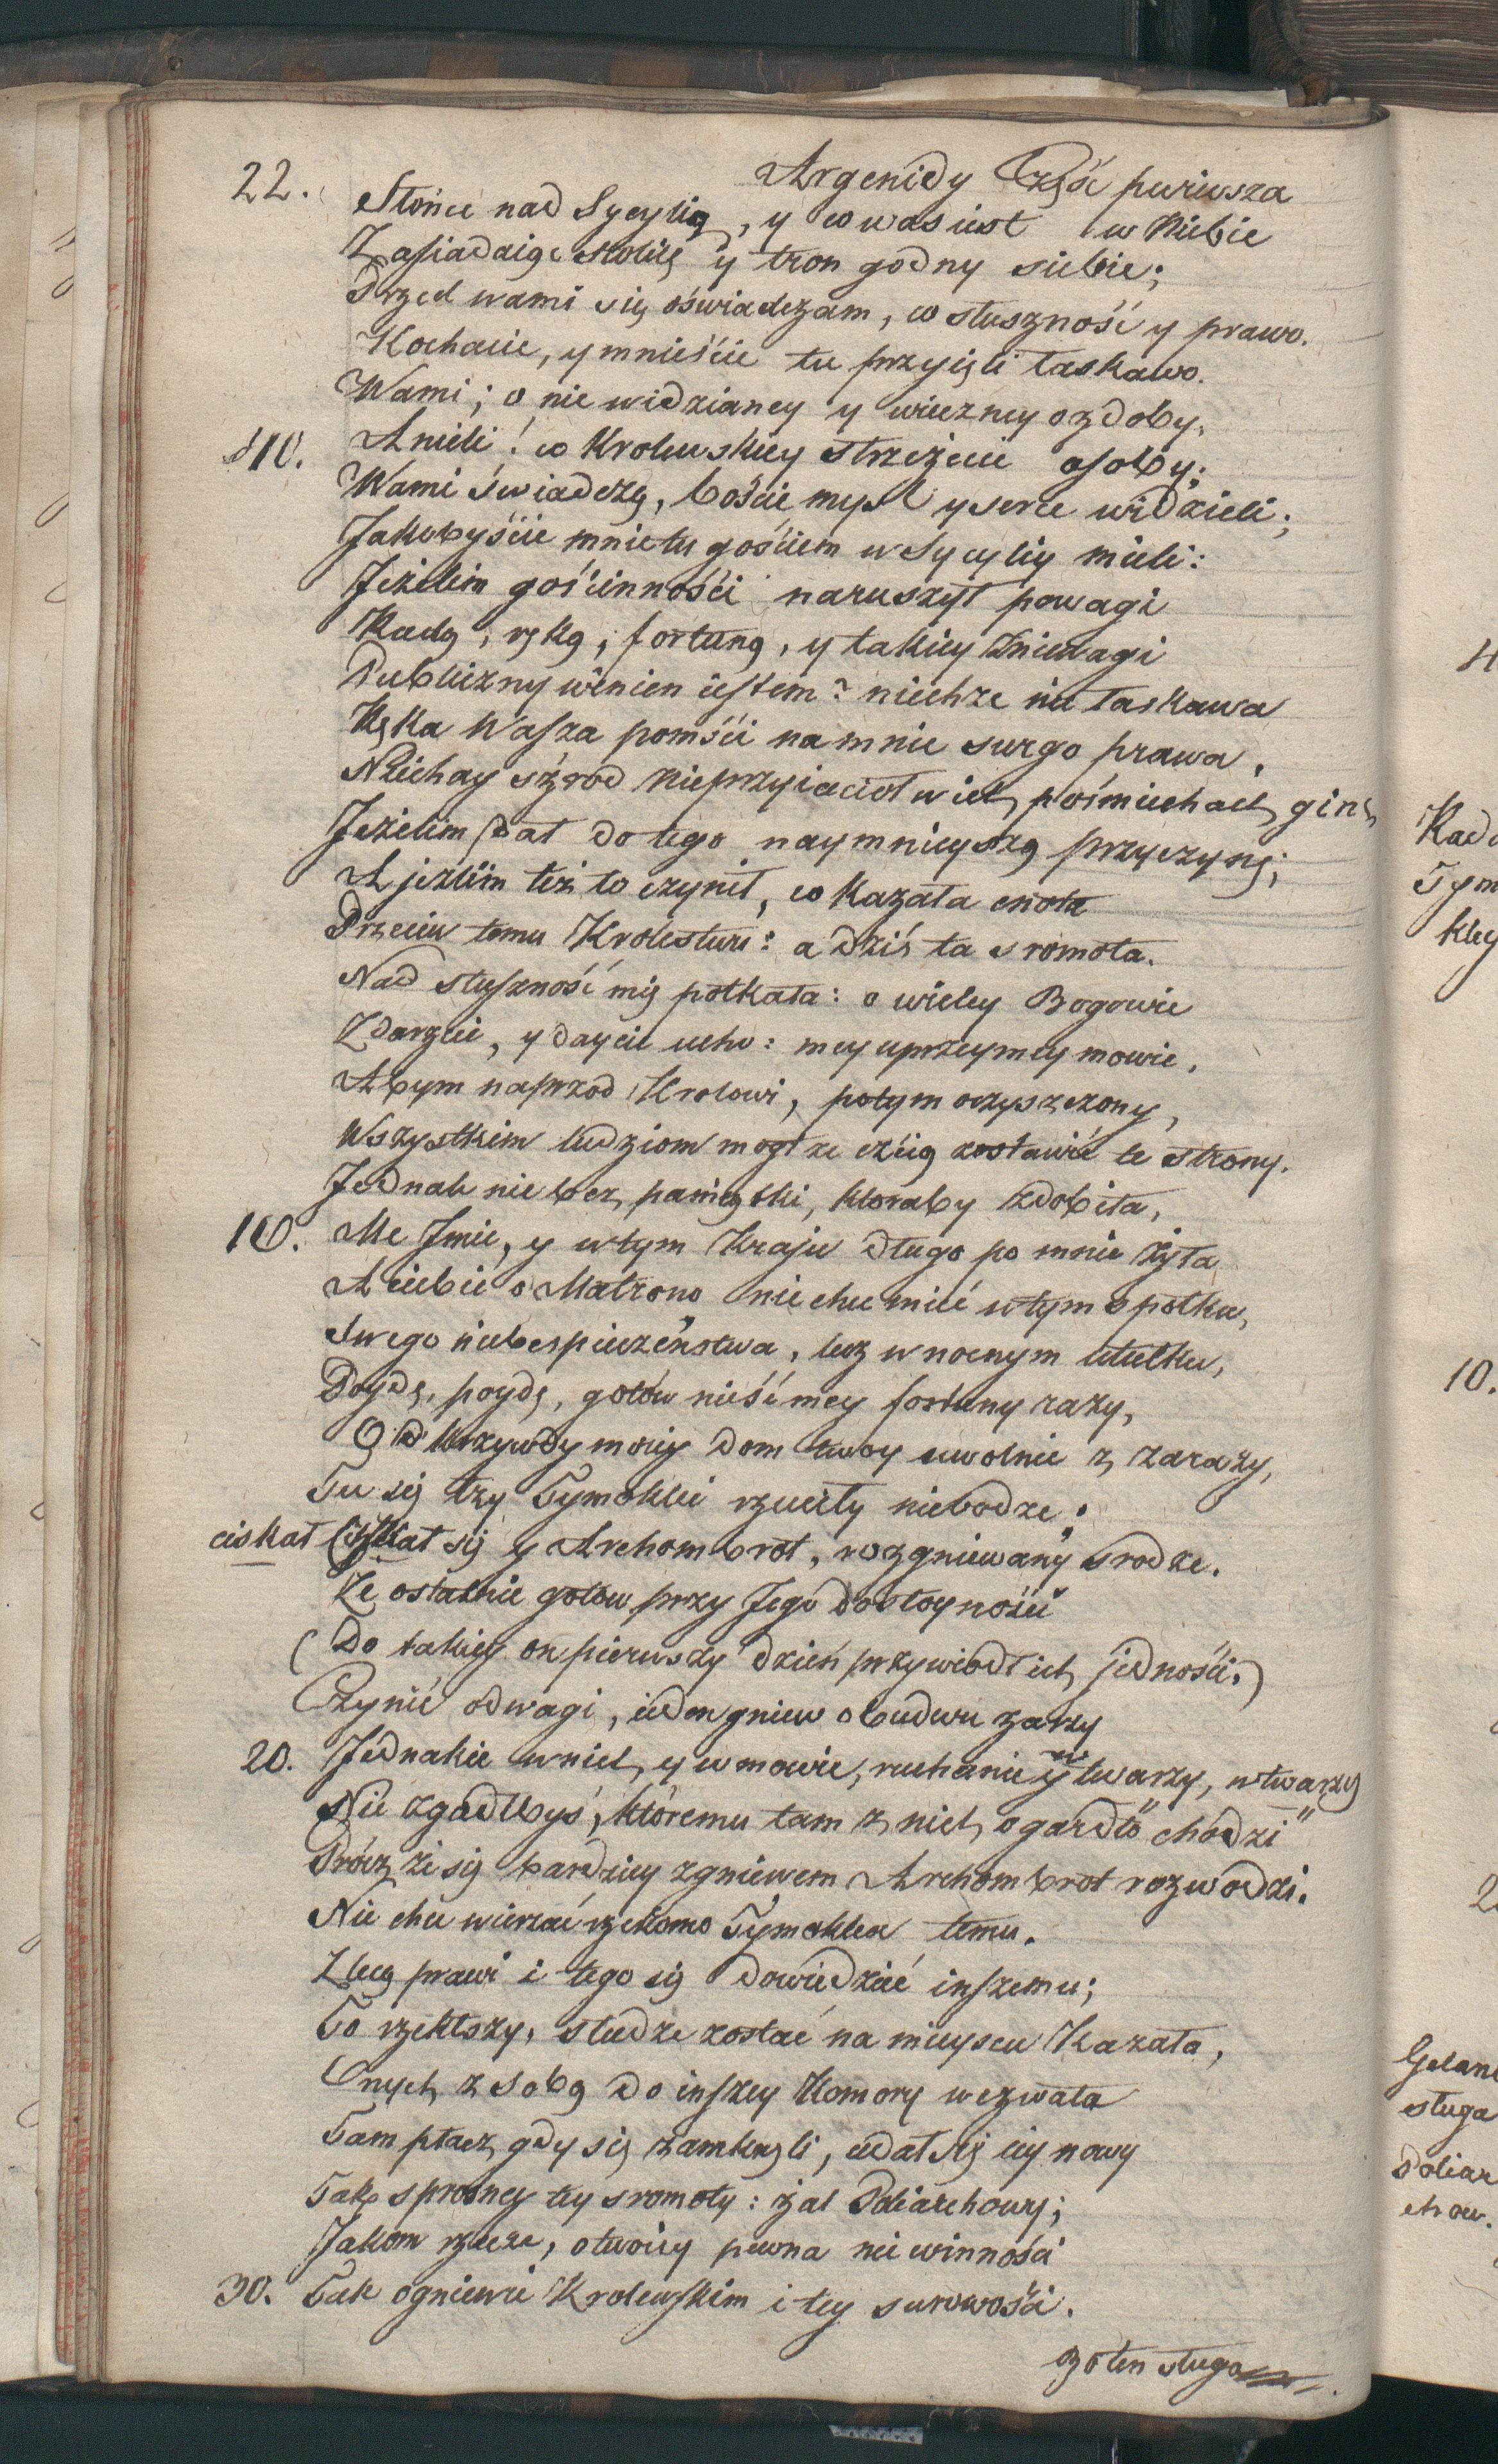 22.
Argenidy Część pierwsza
Słońce nad Sycylią, y co was iest w Niebie
Zasiadaiąc stolicę y tron godny siebie;
Przed wami się oświadczam, co słuszność y prawo.
Kochacie, y mnieście tu przyięli łaskawo.
Wami; o nie widzianey y wieczney ozdoby,
410. Anieli! co Krolewskiey strzeżecie osoby;
Wami świadczę, boście mysl y serce widzieli;
Jakobyście mnie tu gościem w Sycyliy mieli:
Jeżelim gościnności naruszył powagi
Radą, ręką, fortuną, y takiey zniewagi
Publiczny winien iestem? niechże nie łaskawa
Ręka Wasza pomści na mnie surgo prawa,
Niechay śżrod nieprzyiacioł w ich pośmiechach ginę
Jeżelim dał do tego naymnieyszą przyczynę;
A jeżlim też to czynił, co kazała cnota
Przeciw temu Krolestwu: a dziś ta sromota.
Nad słuszność mię potkała: o wielcy Bogowie
Zdarzcie, y daycie ucho: mey uprzeymey mowie,
Abym naprzod Krolowi, potym oczyszczony,
Wszystkim ludziom mogł ze czcią zostawić te strony.
Jednak nie bez pamiątki, ktoraby zdobiła,
10. Me Jmie, y w tym Kraju długo po mnie żyła
A ciebie o Matrono nie chce mieć w tym społku,
Swego niebespieczeństwa, lecz w nocnym
Poydę, poydę, gotów nieść mey fortuny razy,
Od krzywdy moiey dom twoy uwolnie z zarazy,
Tu się łzy Tymoklei rzuciły niebodze;
ciskał Ciskał się y Archombrot, rozgniewany srodze.
Ze ostatnie gotow przy Jego dostoyności
(Do takiey on pierwszy dzień przywiodł ich jedności.)
Czynić odwagi, ieden gniew obudwu żarzy
20. Jednakie w nich, y w mowie, ruchanie y w twarzy, w twarzy
Nie zgadłbyś, któremu tam z nich o gardło chodzi
Prócz że się bardziey z gniewem Archombrot rozwodzi.
Nie chce wierzać rzekomo Tymoklea temu.
Zlecę prawi i tego się dowiedzieć inszemu;
To rzekłszy, słudze zostać na mieyscu Kazała,
Onych z sobą do inszey Komory wezwała
Tam płacz, gdy się zamknęli, udał się iey nowy
Tak sprosney tey sromoty: żal Poliarchowy;
Jakom rzecze, o twoiey pewna niewinności
30. Tak o gniewie Krolewskim i tey surowości.
Bo ten sługa